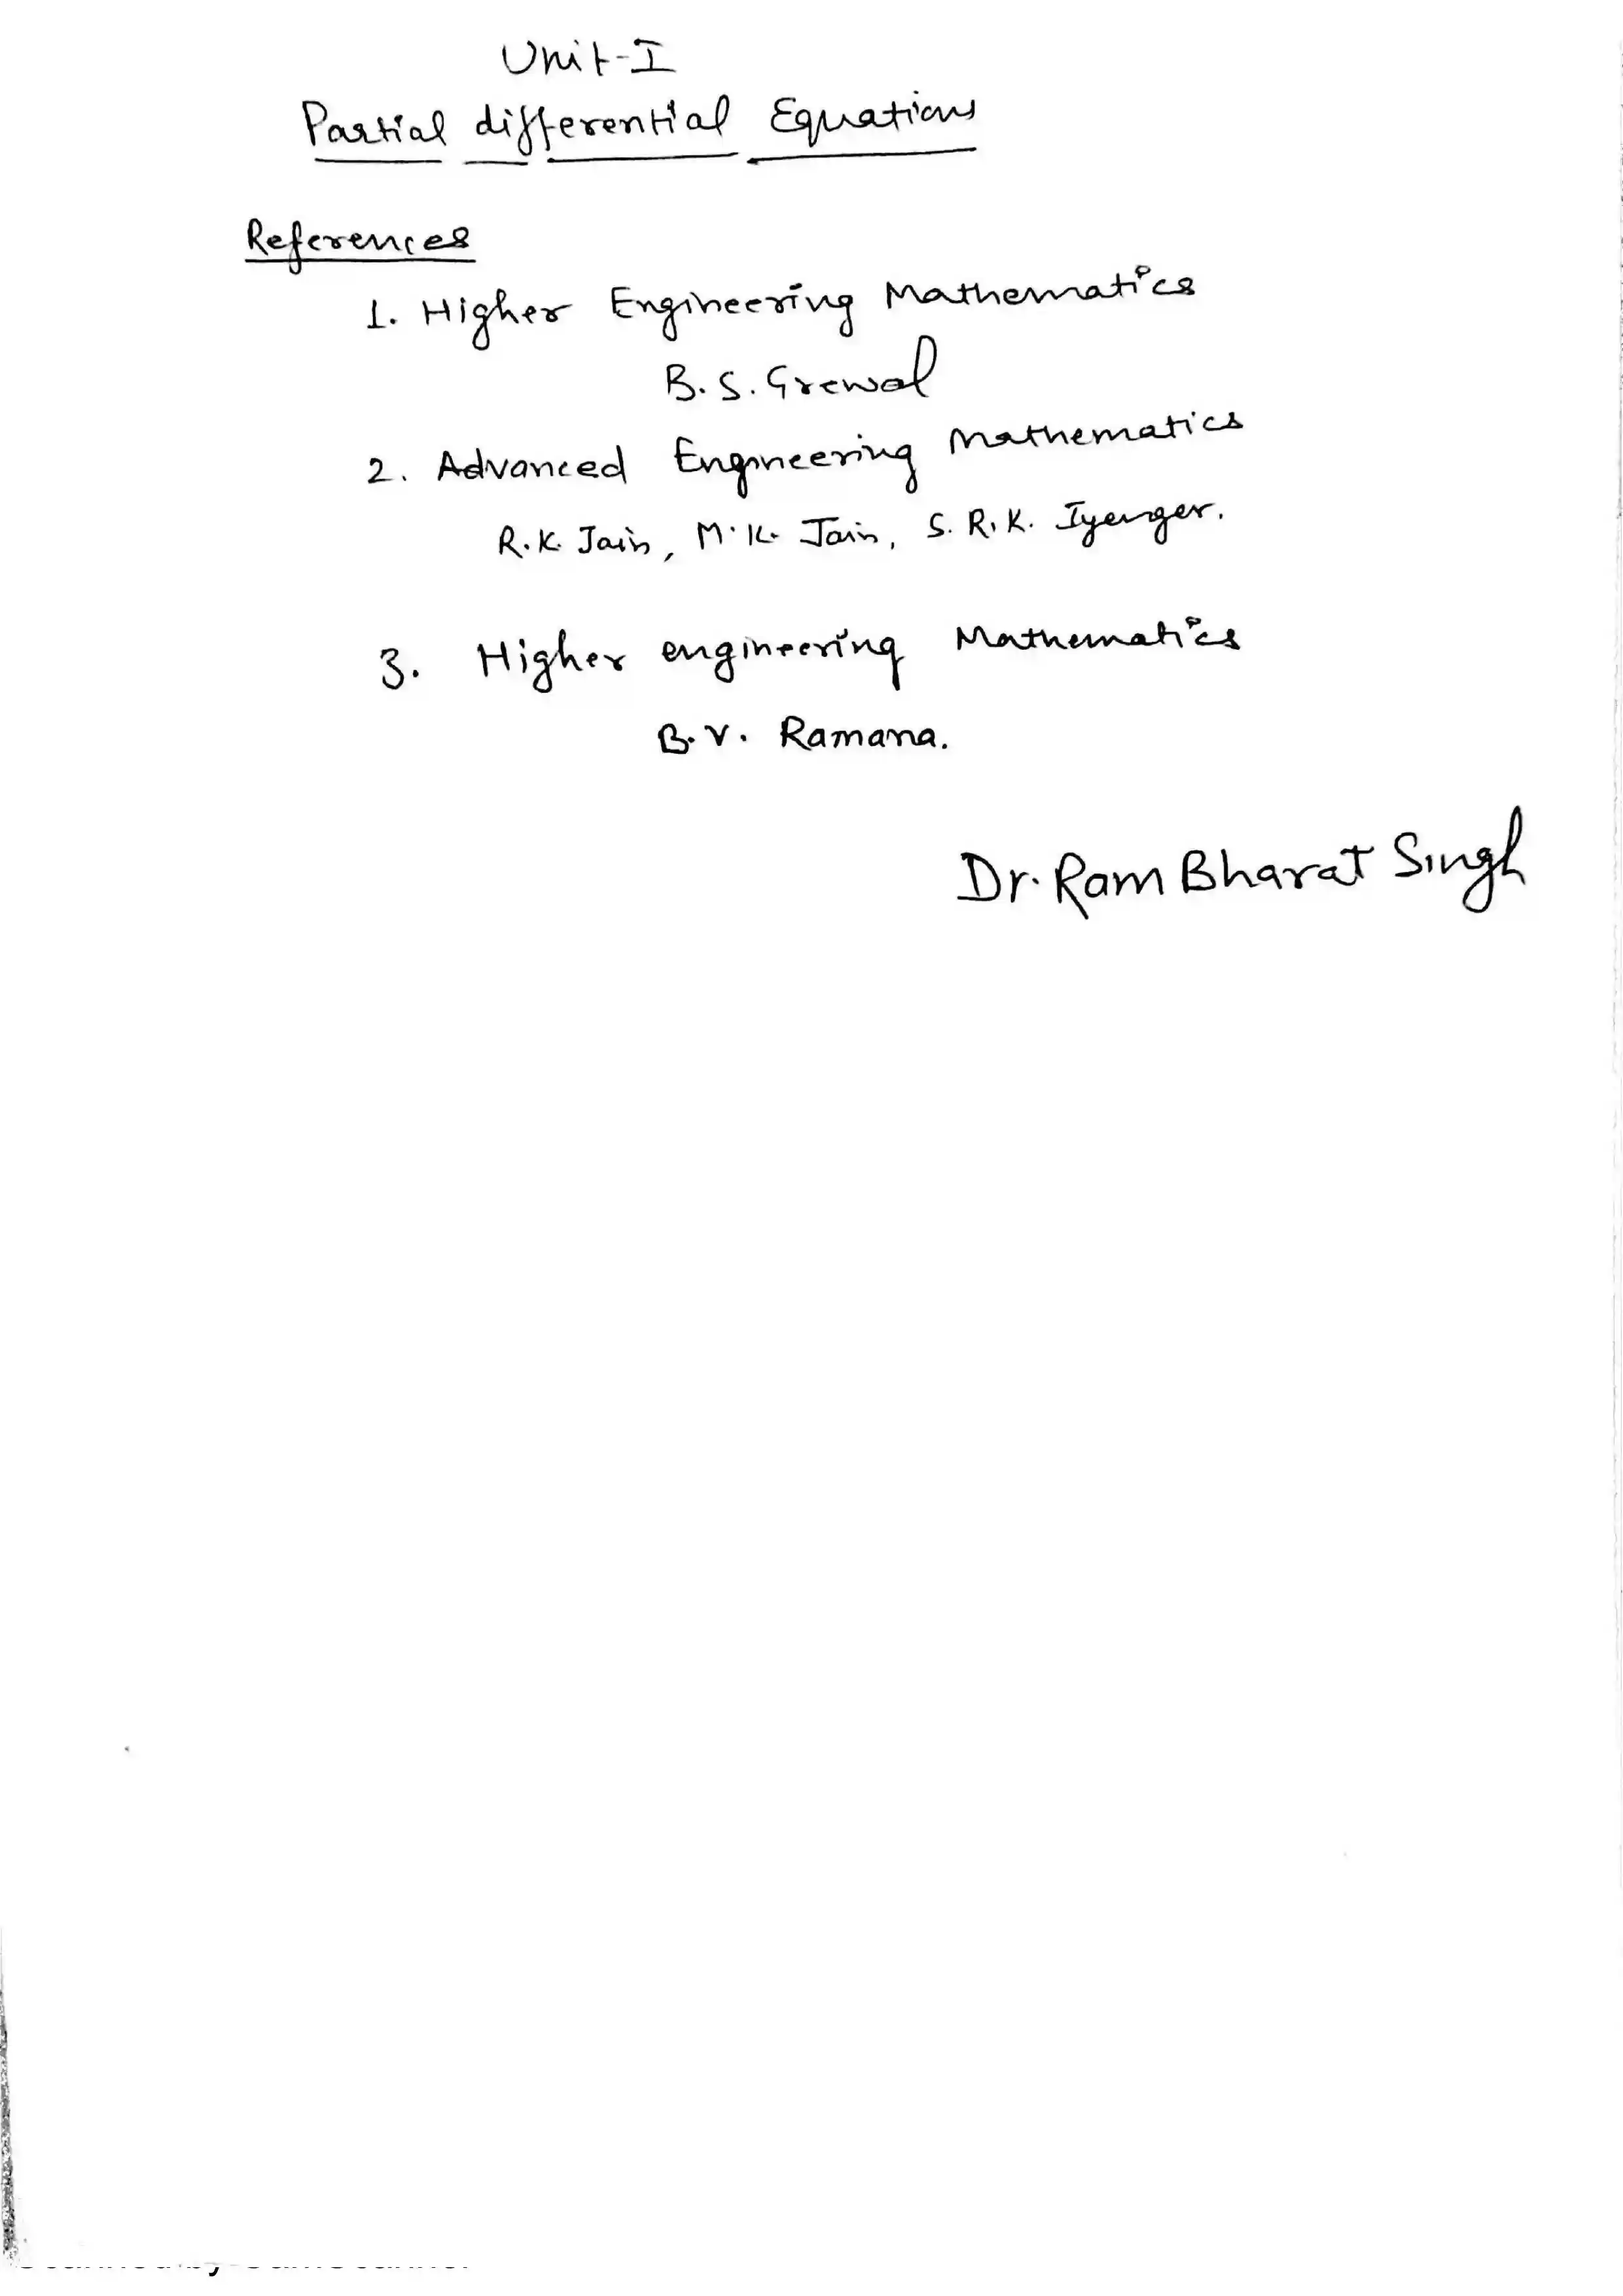 Unit-I
Partial differential Equations
References
1. Higher Engineering Mathematics
B. S. Grewal
2. Advanced Engineering Mathematics
R.K. Jain, M.K. Jain, S. R. K. Iyenger.
3. Higher engineering Mathematics
B. V. Ramana.
Dr. Ram Bharat Singh
Scanned by CamScanner